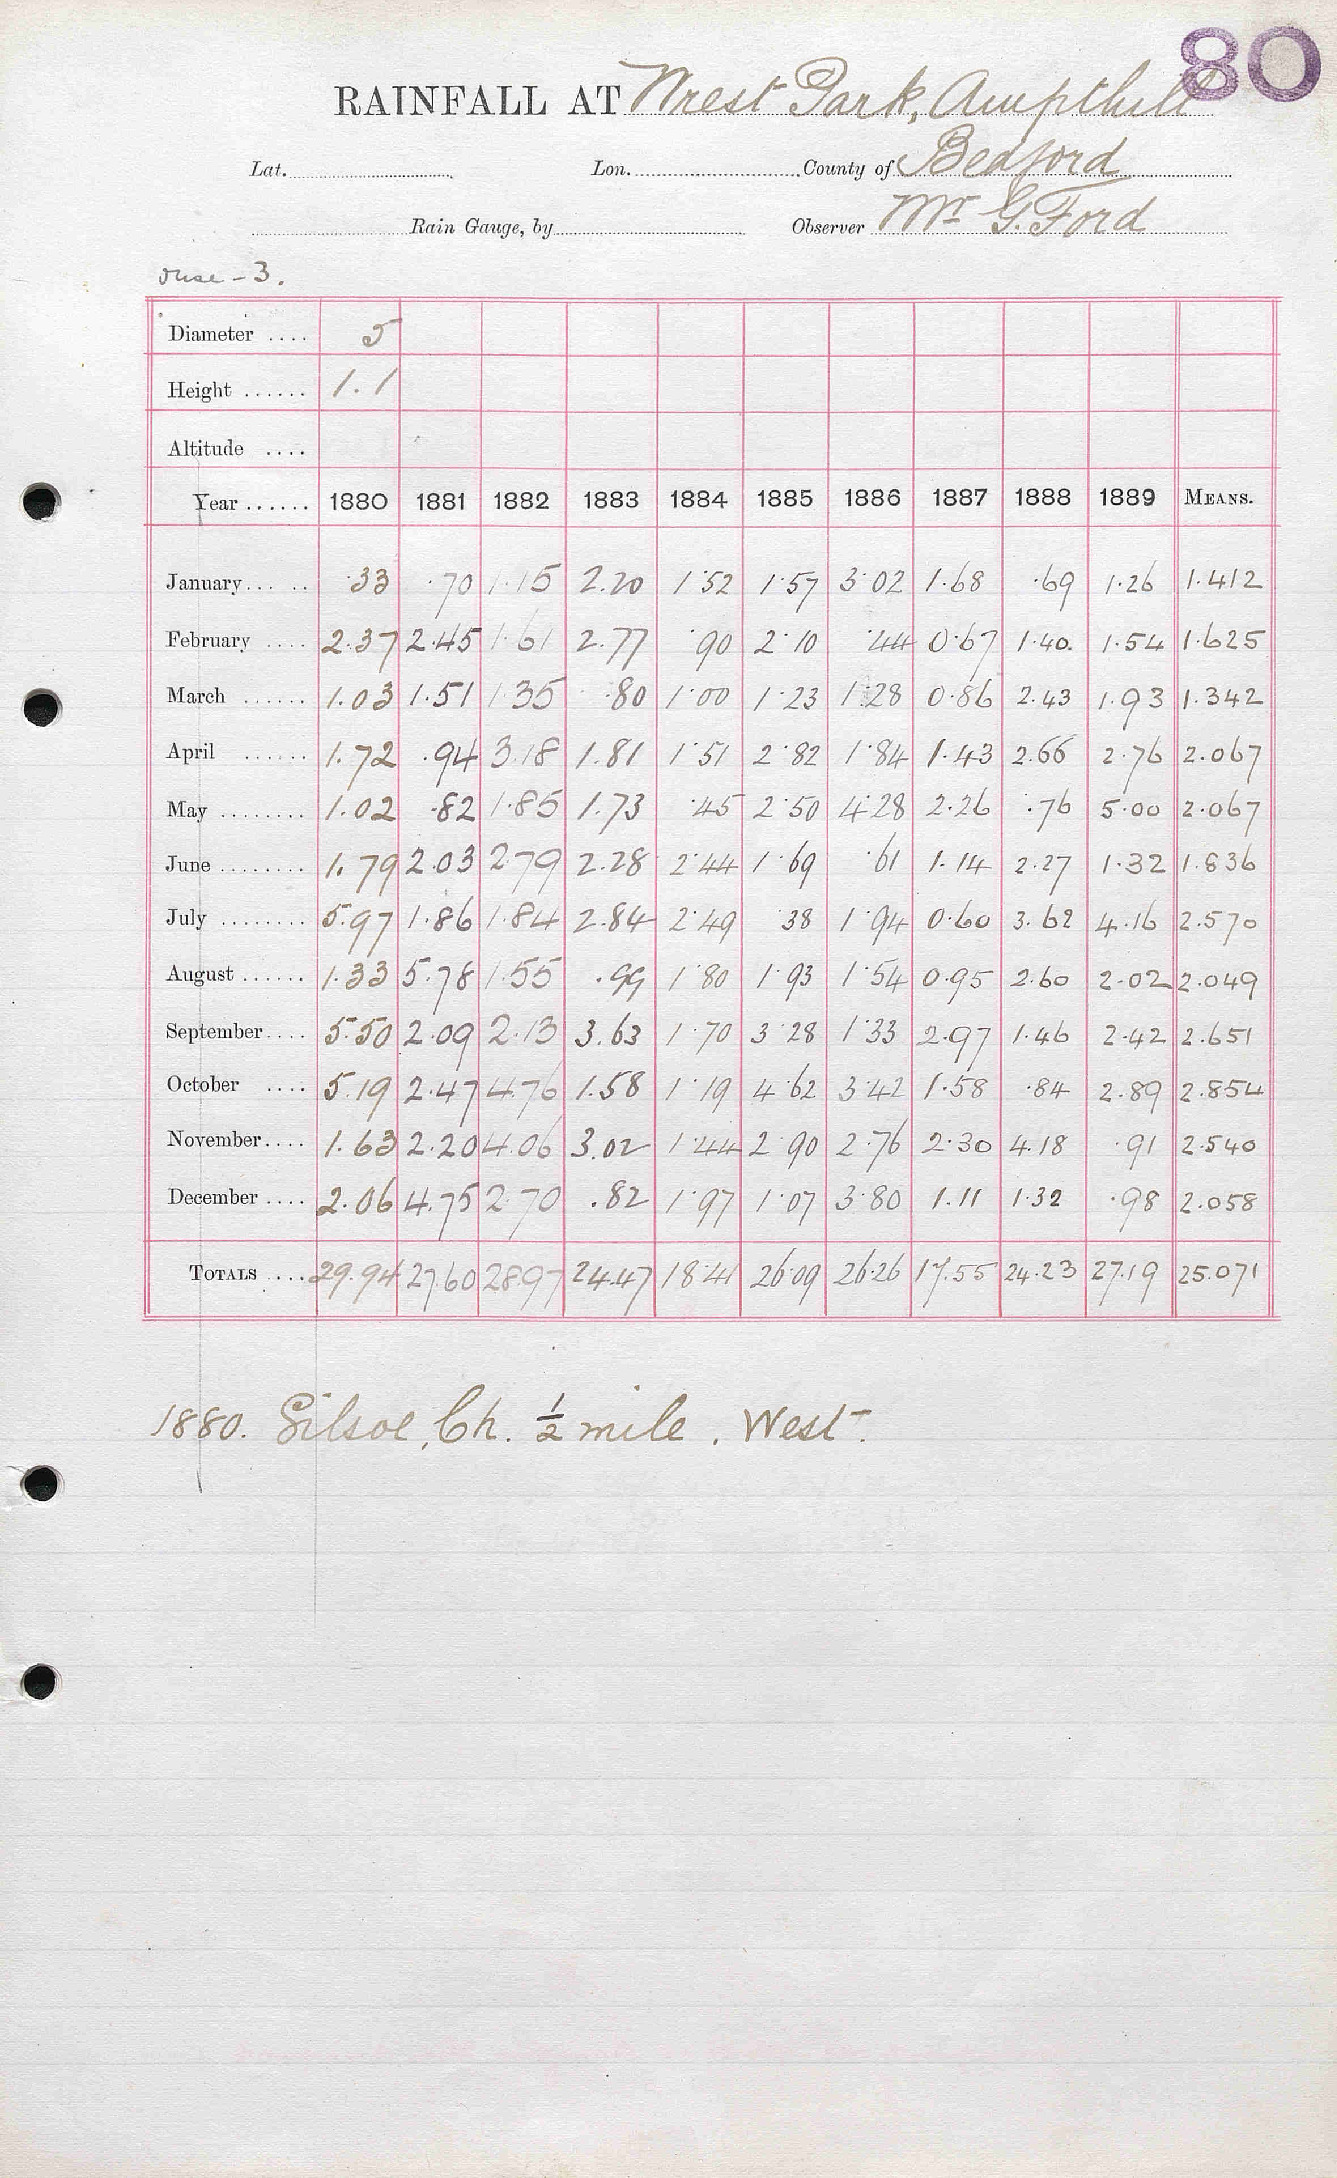 80
RAINFALL AT Wrest Park, Ampthill
Lat. Lon. County of Bedford
Rain Gauge, by Observer Mr G. Ford
Ouse - 3.
Diameter .... 5
Height ...... 1.1
Altitude ....
Year ...... 1880 1881 1882 1883 1884 1885 1886 1887 1888 1889 MEANS.
January.... .. ·33 ·70 1·15 2.20 1·52 1·57 3·02 1·68 ·69 1·26 1·412
February .... 2·37 2·45 1·61 2·77 ·90 2·10 ·44 0·67 1·40 1·54 1·625
March ...... 1·03 1·51 1·35 ·80 1·00 1·23 1·28 0·86 2·43 1·93 1·342
April ...... 1·72 ·94 3·18 1·81 1·51 2·82 1·84 1·43 2·66 2·76 2·067
May ........ 1·02 ·82 1·85 1·73 ·45 2·50 4·28 2·26 ·76 5·00 2·067
June ........ 1·79 2·03 2·79 2·28 2·44 1·69 ·61 1·14 2·27 1·32 1·836
July ........ 5·97 1·86 1·84 2·84 2·49 ·38 1·94 0·60 3·62 4·16 2·570
August ...... 1·33 5·78 1·55 ·99 1·80 1·93 1·54 0·95 2·60 2·02 2·049
September.... 5·50 2·09 2·13 3.63 1·70 3·28 1·33 2·97 1·46 2·42 2·651
October .... 5·19 2·47 4·76 1·58 1·19 4·62 3·42 1·58 ·84 2·89 2·854
November.... 1·63 2·20 4·06 3.02 1·44 2·90 2·76 2·30 4·18 ·91 2·540
December .... 2·06 4·75 2·70 .82 1·97 1·07 3·80 1·11 1·32 ·98 2·058
TOTALS .... 29·94 27·60 28·97 24·47 18·41 26·09 26·26 17·55 24·23 27·19 25·071
1880. Silsoe, Ch. ½ mile. West.